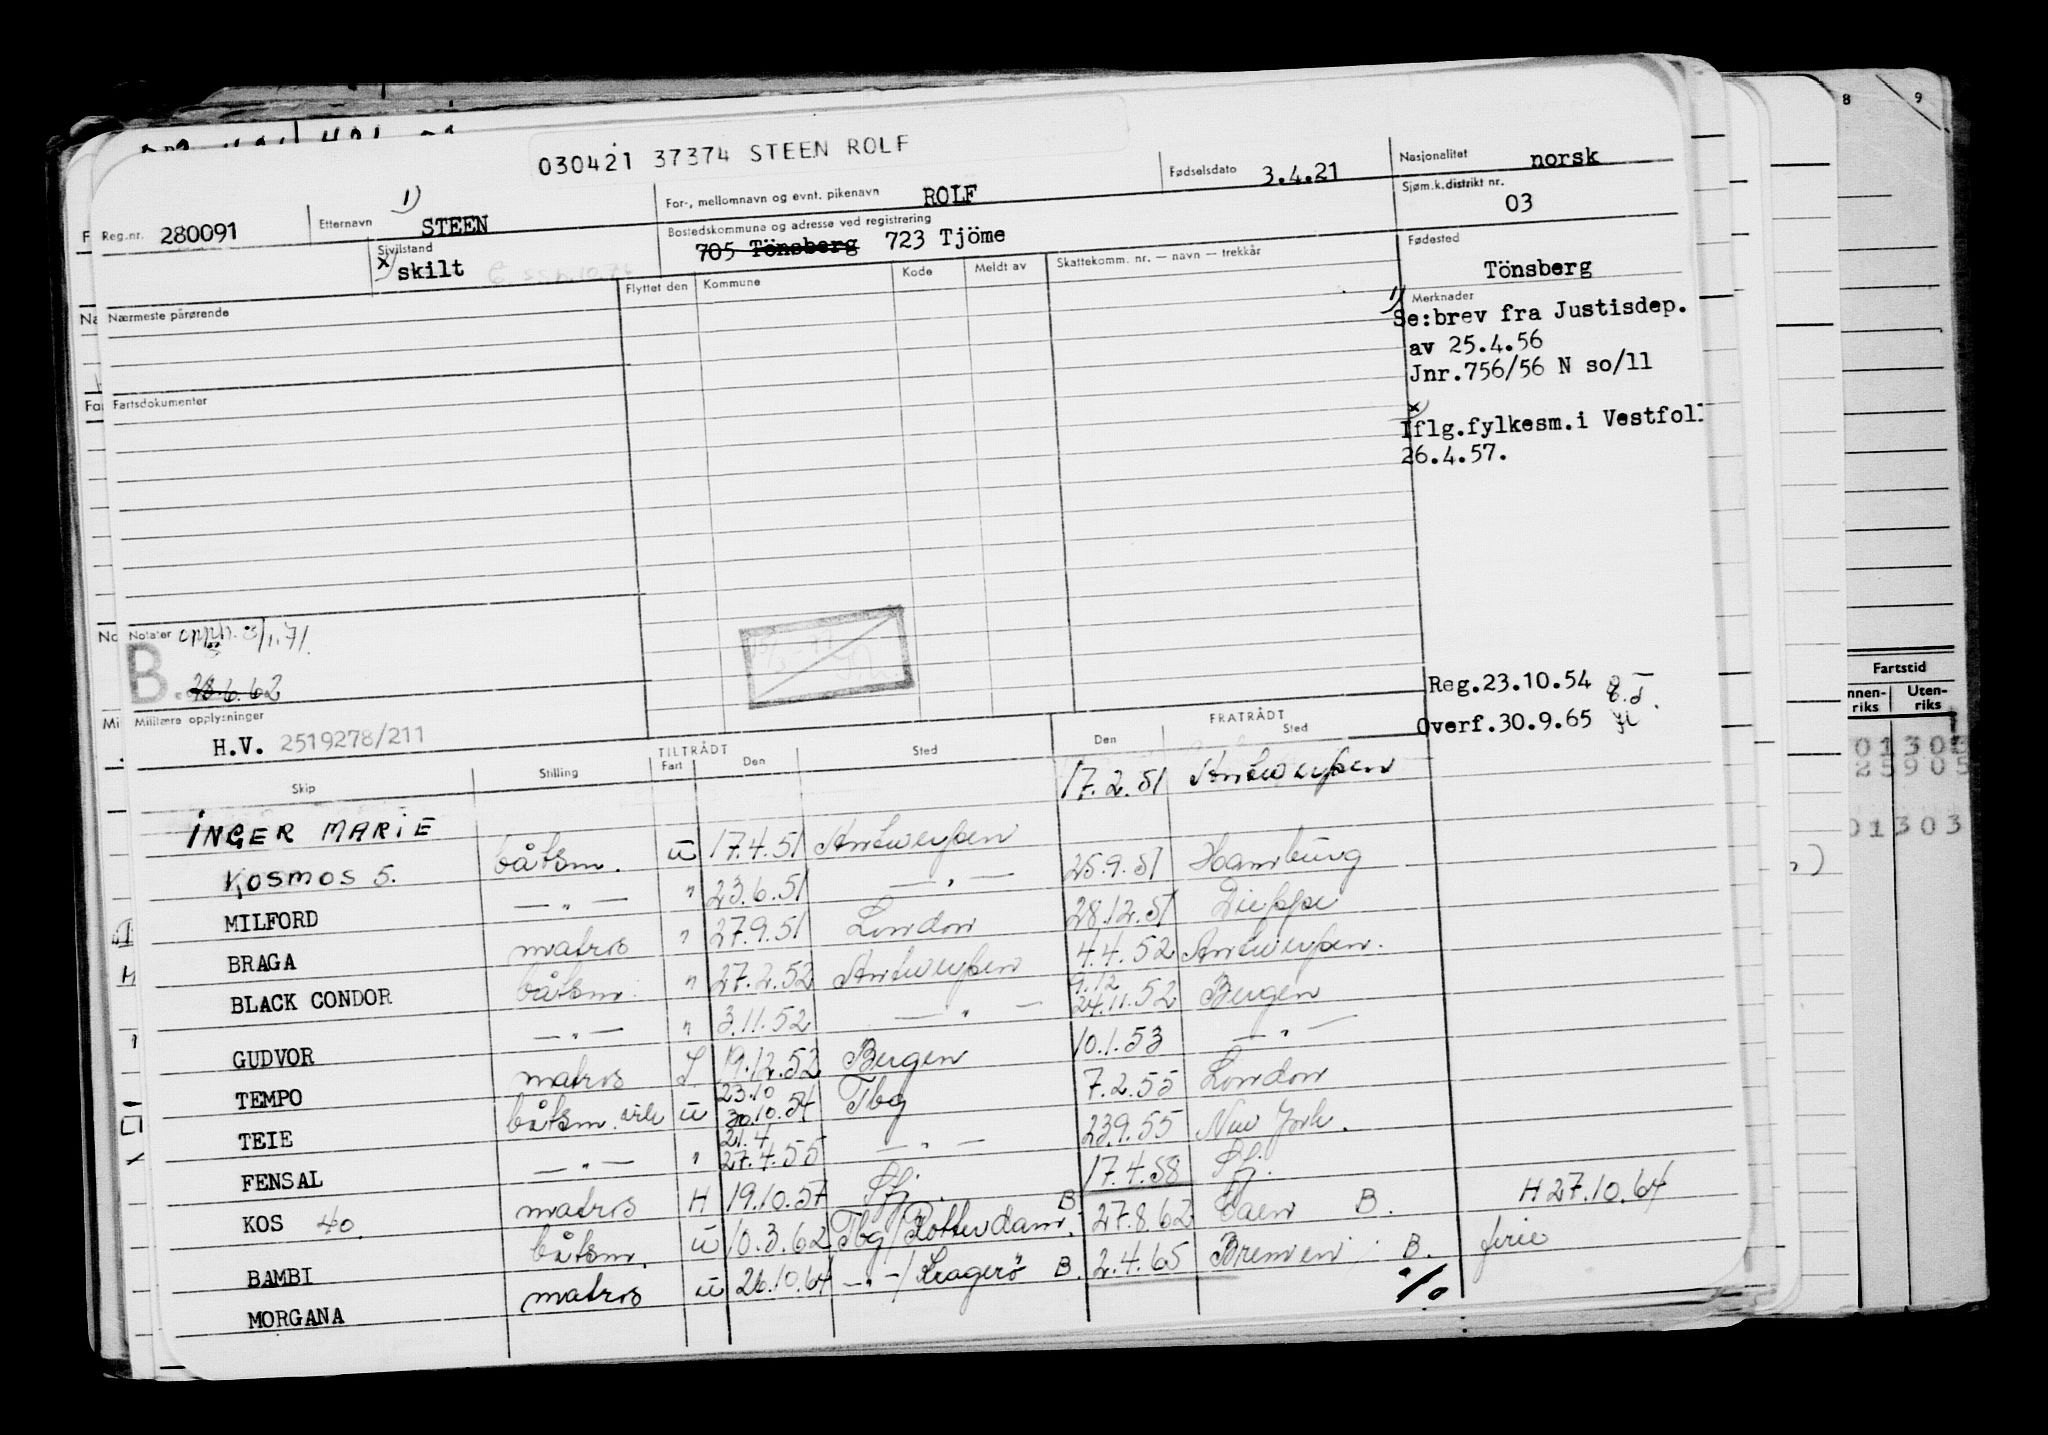 030421 37374 STEEN ROLF
Reg.nr. 280091 Etternavn 1) STEEN For-, mellomnavn og evnt. pikenavn ROLF Fødselsdato 3.4.21 Nasjonalitet norsk
Sivilstand x) skilt Bostedskommune og adresse ved registrering 705 Tönsberg 723 Tjöme Sjøm.k.distrikt nr. 03
Nærmeste pårørende Flyttet den Kommune Kode Meldt av Skattekomm. nr. — navn — trekkår Fødested Tönsberg
1) Merknader
Se:brev fra Justisdep.
av 25.4.56
Jnr.756/56 N so/11
Fartsdokumenter
x)
Iflg.fylkesm.i Vestfol
26.4.57.
Notater 3/1.71.
B. 28.6.62
Reg.23.10.54
Overf.30.9.65
Militære opplysninger
H.V. 2519278/211
TILTRÅDT FRATRÅDT
Skip Stilling Fart Den Sted Den Sted
17.2.51 Antwerpen
INGER MARIE
KOSMOS 5. båtsm. u 17.4.51 Antwerpen
MILFORD — " — " 23.6.51 — " — 25.9.51 Hamburg
BRAGA matros " 27.9.51 London 28.12.51 Dieppe
BLACK CONDOR båtsm. " 27.2.52 Antwerpen 4.4.52 Antwerpen.
— " — " 3.11.52 — " — 9.12 24.11.52 Bergen
GUDVOR matros 19.12.52 Bergen 10.1.53 — " —
TEMPO båtsm. u 23.10 30.10.54 Tbg 7.2.55 London
TEIE — " — " 21.4 27.4.55 — " — 23.9.55 New York.
FENSAL matros H 19.10.57 Sfj. 17.4.58 Sfj.
KOS 40. båtsm. u 10.3.62 Tbg/Rotterdam. B 27.8.62 Caen B. H 27.10.64
BAMBI matros u 26.10.64 — " —/Kragerö B. 2.4.65 Bremen B. ferie
MORGANA
%
8 9
Fartstid
Innen-riks Uten-riks
01303
25905
01303